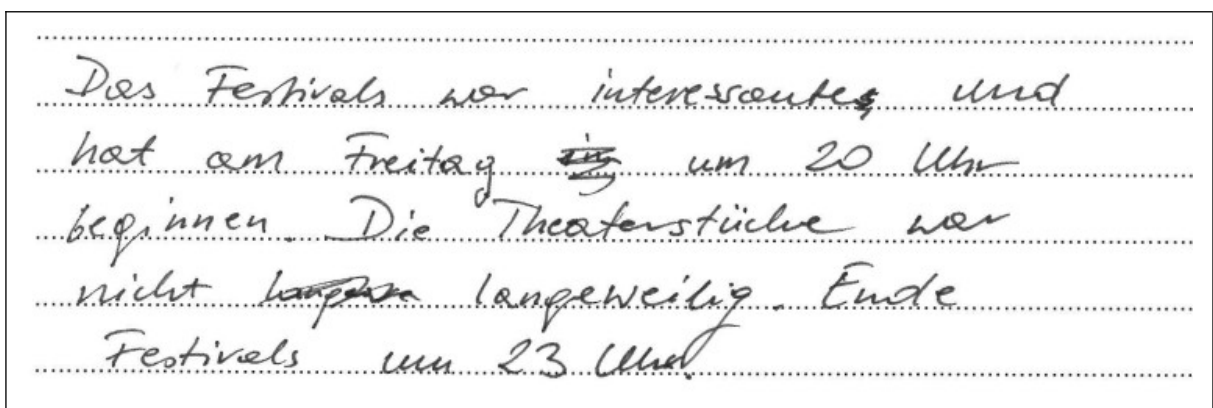 Das Festivals war interessantes und
hat am Freitag um 20 Uhr
beginnen. Die Theaterstücke war
nicht langeweilig. Ende
Festivals um 23 Uhr.